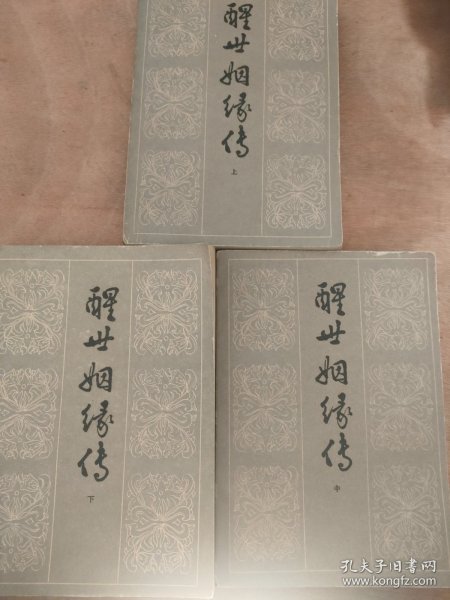 醒世姻缘传
上
醒世姻缘传
下
醒世姻缘传
中
孔夫子旧书网
www.kongfz.com